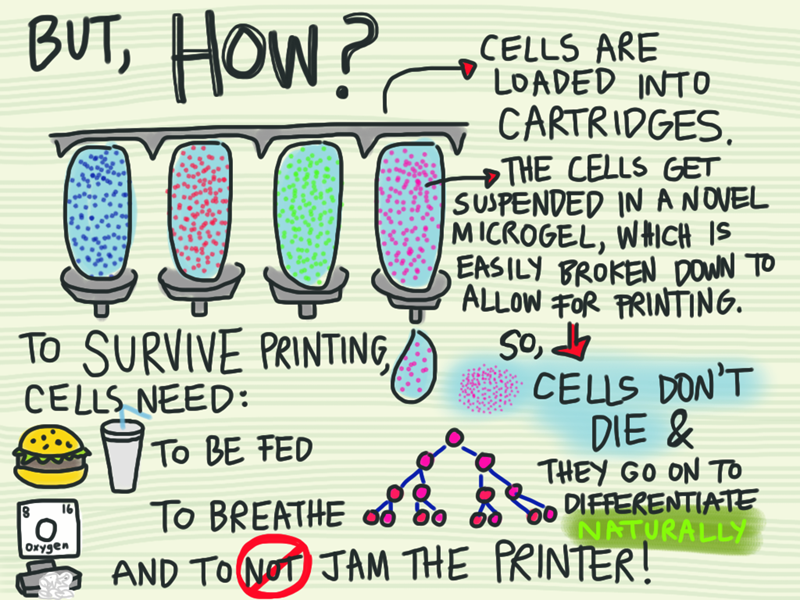 BUT, HOW?
CELLS ARE
LOADED INTO
CARTRIDGES.
THE CELLS GET
SUSPENDED IN A NOVEL
MICROGEL, WHICH IS
EASILY BROKEN DOWN TO
ALLOW FOR PRINTING.
SO,
CELLS DON'T
DIE &
THEY GO ON TO
DIFFERENTIATE
NATURALLY
TO SURVIVE PRINTING,
CELLS NEED:
TO BE FED
8 16
O
Oxygen
TO BREATHE
AND TO NOT JAM THE PRINTER!